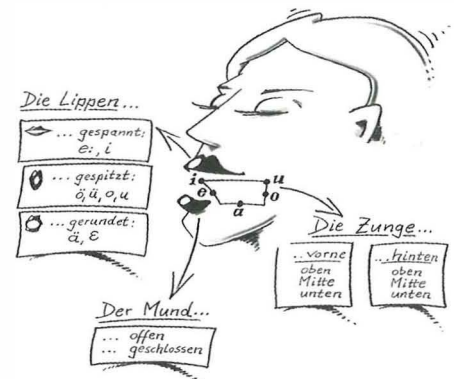 Die Lippen...
... gespannt:
e:, i
... gespitzt:
ö, ü, o, u
... gerundet:
ä, ɛ
i
u
e
o
a
Die Zunge...
...vorne
oben
Mitte
unten
...hinten
oben
Mitte
unten
Der Mund...
... offen
... geschlossen